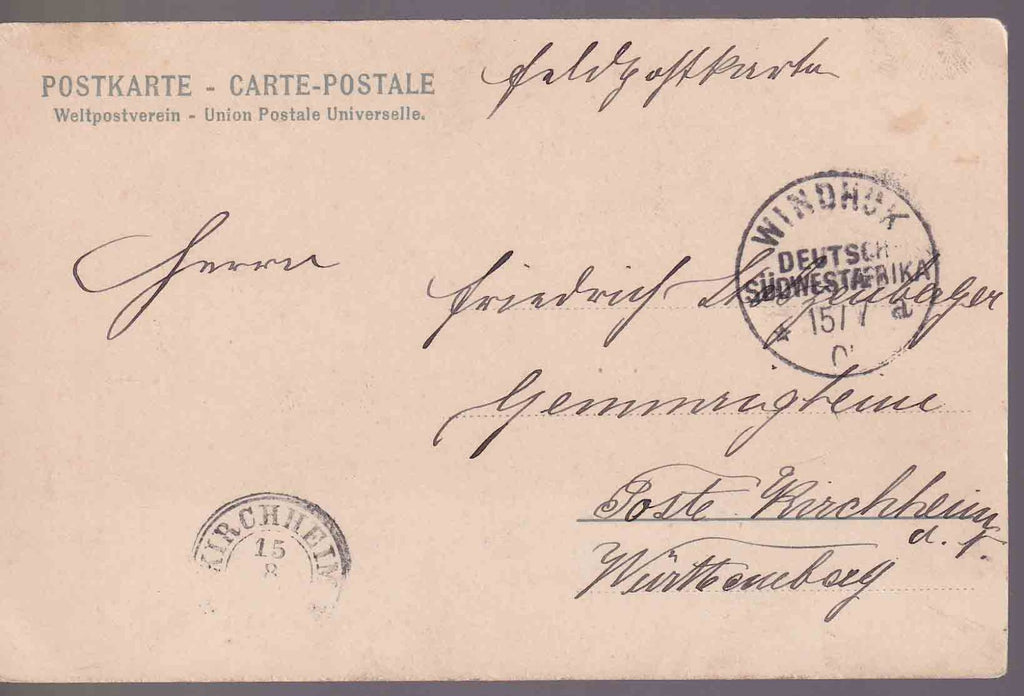 POSTKARTE - CARTE-POSTALE
Weltpostverein - Union Postale Universelle.
Feldpostkarte
WINDHUK
DEUTSCH-
SÜDWESTAFRIKA
* 15/7 a
Herrn
Friedrich
Gemmrigheim
Poste Kirchheim
a. N.
Württemberg
KIRCHHEIM
15
8